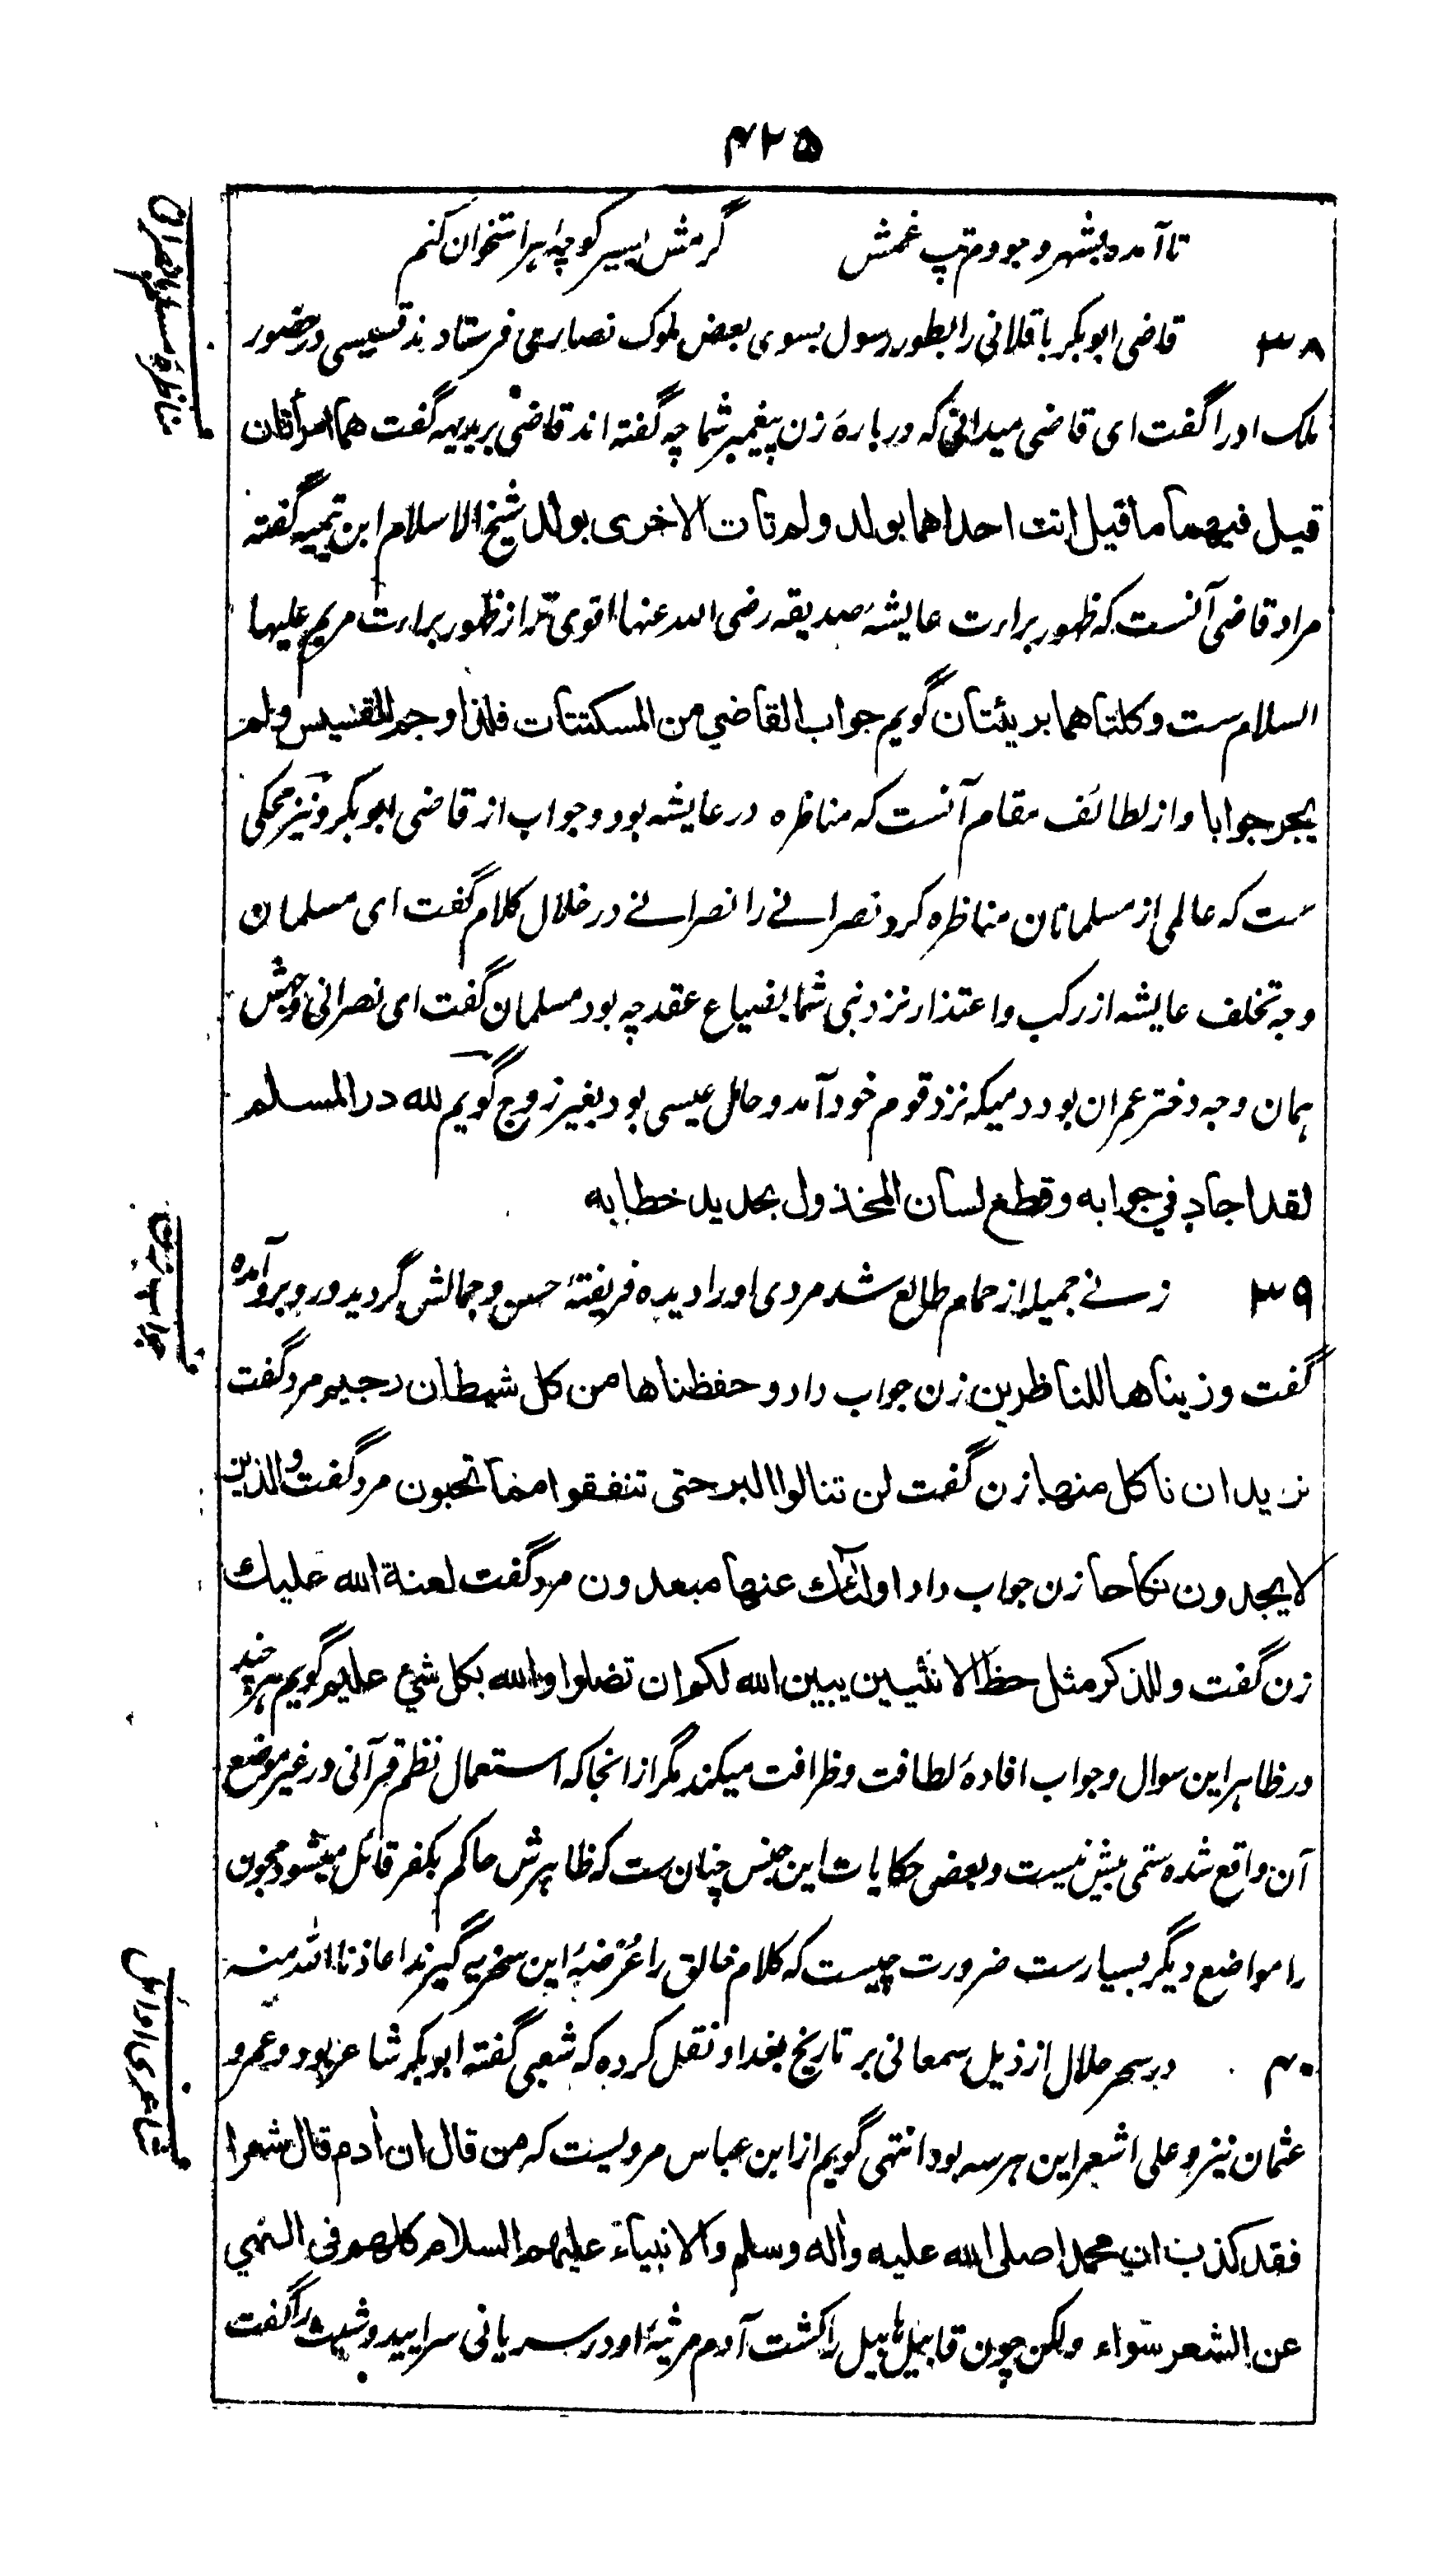 ۴۲۵
تا آمده بشهر وجودم تپ غمش گرمش بسیر کوچهٔ هر استخوان کنم
۳۸ قاضی ابوبکر باقلانی را بطور رسول بسوی بعض ملوک نصاری فرستادند قسیسی در حضور
ملک او را گفت ای قاضی میدانی که دربارهٔ زن پیغمبر شما چه گفته اند قاضی بربدیهه گفت هما امرأتان
قیل فیهما ما قیل اتت احداهما بولد ولم تات الاخری بولد شیخ الاسلام ابن تیمیه گفته
مراد قاضی آنست که ظهور براءت عایشهٔ صدیقه رضی الله عنها اقوی تر از ظهور براءت مریم علیها
السلام ست وکلتاهما بریئتان گویم جواب القاضي من المسکتات فلذا وجم القسیس ولم
یحر جوابا واز لطائف مقام آنست که مناظره در عایشه بود وجواب از قاضی ابوبکر ونیز محکی
ست که عالمی از مسلمانان مناظره کرد نصرانے را نصرانے در خلال کلام گفت ای مسلمان
وجه تخلف عایشه از رکب واعتذار نزد نبی شما بضیاع عقد چه بود مسلمان گفت ای نصرانی وجهش
همان وجه دختر عمران بود دمیکه نزد قوم خود آمد وحامل عیسی بود بغیر زوج گویم لله در المسلم
لقد اجاد في جوابه وقطع لسان المخذول بحدید خطابه
۳۹ زنے جمیله از حمام طالع شد مردی او را دیده فریفتهٔ حسن وجمالش گردید ورو برو آمده
گفت وزیناها للناظرین زن جواب داد وحفظناها من کل شیطان رجیم مرد گفت
نرید ان ناکل منها زن گفت لن تنالوا البر حتی تنفقوا مما تحبون مرد گفت والذین
لا یجدون نکاحا زن جواب داد اولئک عنها مبعدون مرد گفت لعنة الله علیك
زن گفت وللذکر مثل حظ الانثیین یبین الله لکم ان تضلوا والله بکل شيء علیم گویم هر چند
در ظاهر این سوال وجواب افادهٔ لطافت وظرافت میکند مگر از انجا که استعمال نظم قرآنی در غیر موضع
آن واقع شده ستمی بیش نیست وبعض حکایات این جنس چنان ست که ظاهرش حاکم بکفر قائل میشود مجون
را مواضع دیگر بسیارست ضرورت چیست که کلام خالق را عرضهٔ این سخریه گیرند اعاذنا الله منه
۴۰ در سحر حلال از ذیل سمعانی بر تاریخ بغداد نقل کرده که شعبی گفته ابوبکر شاعر بود وعمر و
عثمان نیز وعلی اشعر این هر سه بود انتهی گویم از ابن عباس مرویست که من قال ان اٰدم قال شعرا
فقد کذب ان محمدا صلی الله علیه واٰله وسلم والانبیاء علیهم السلام کلهم فی النهي
عن الشعر سواء ولکن چون قابیل هابیل را کشت آدم مرثیهٔ او در سریانی سرایید وشیث را گفت